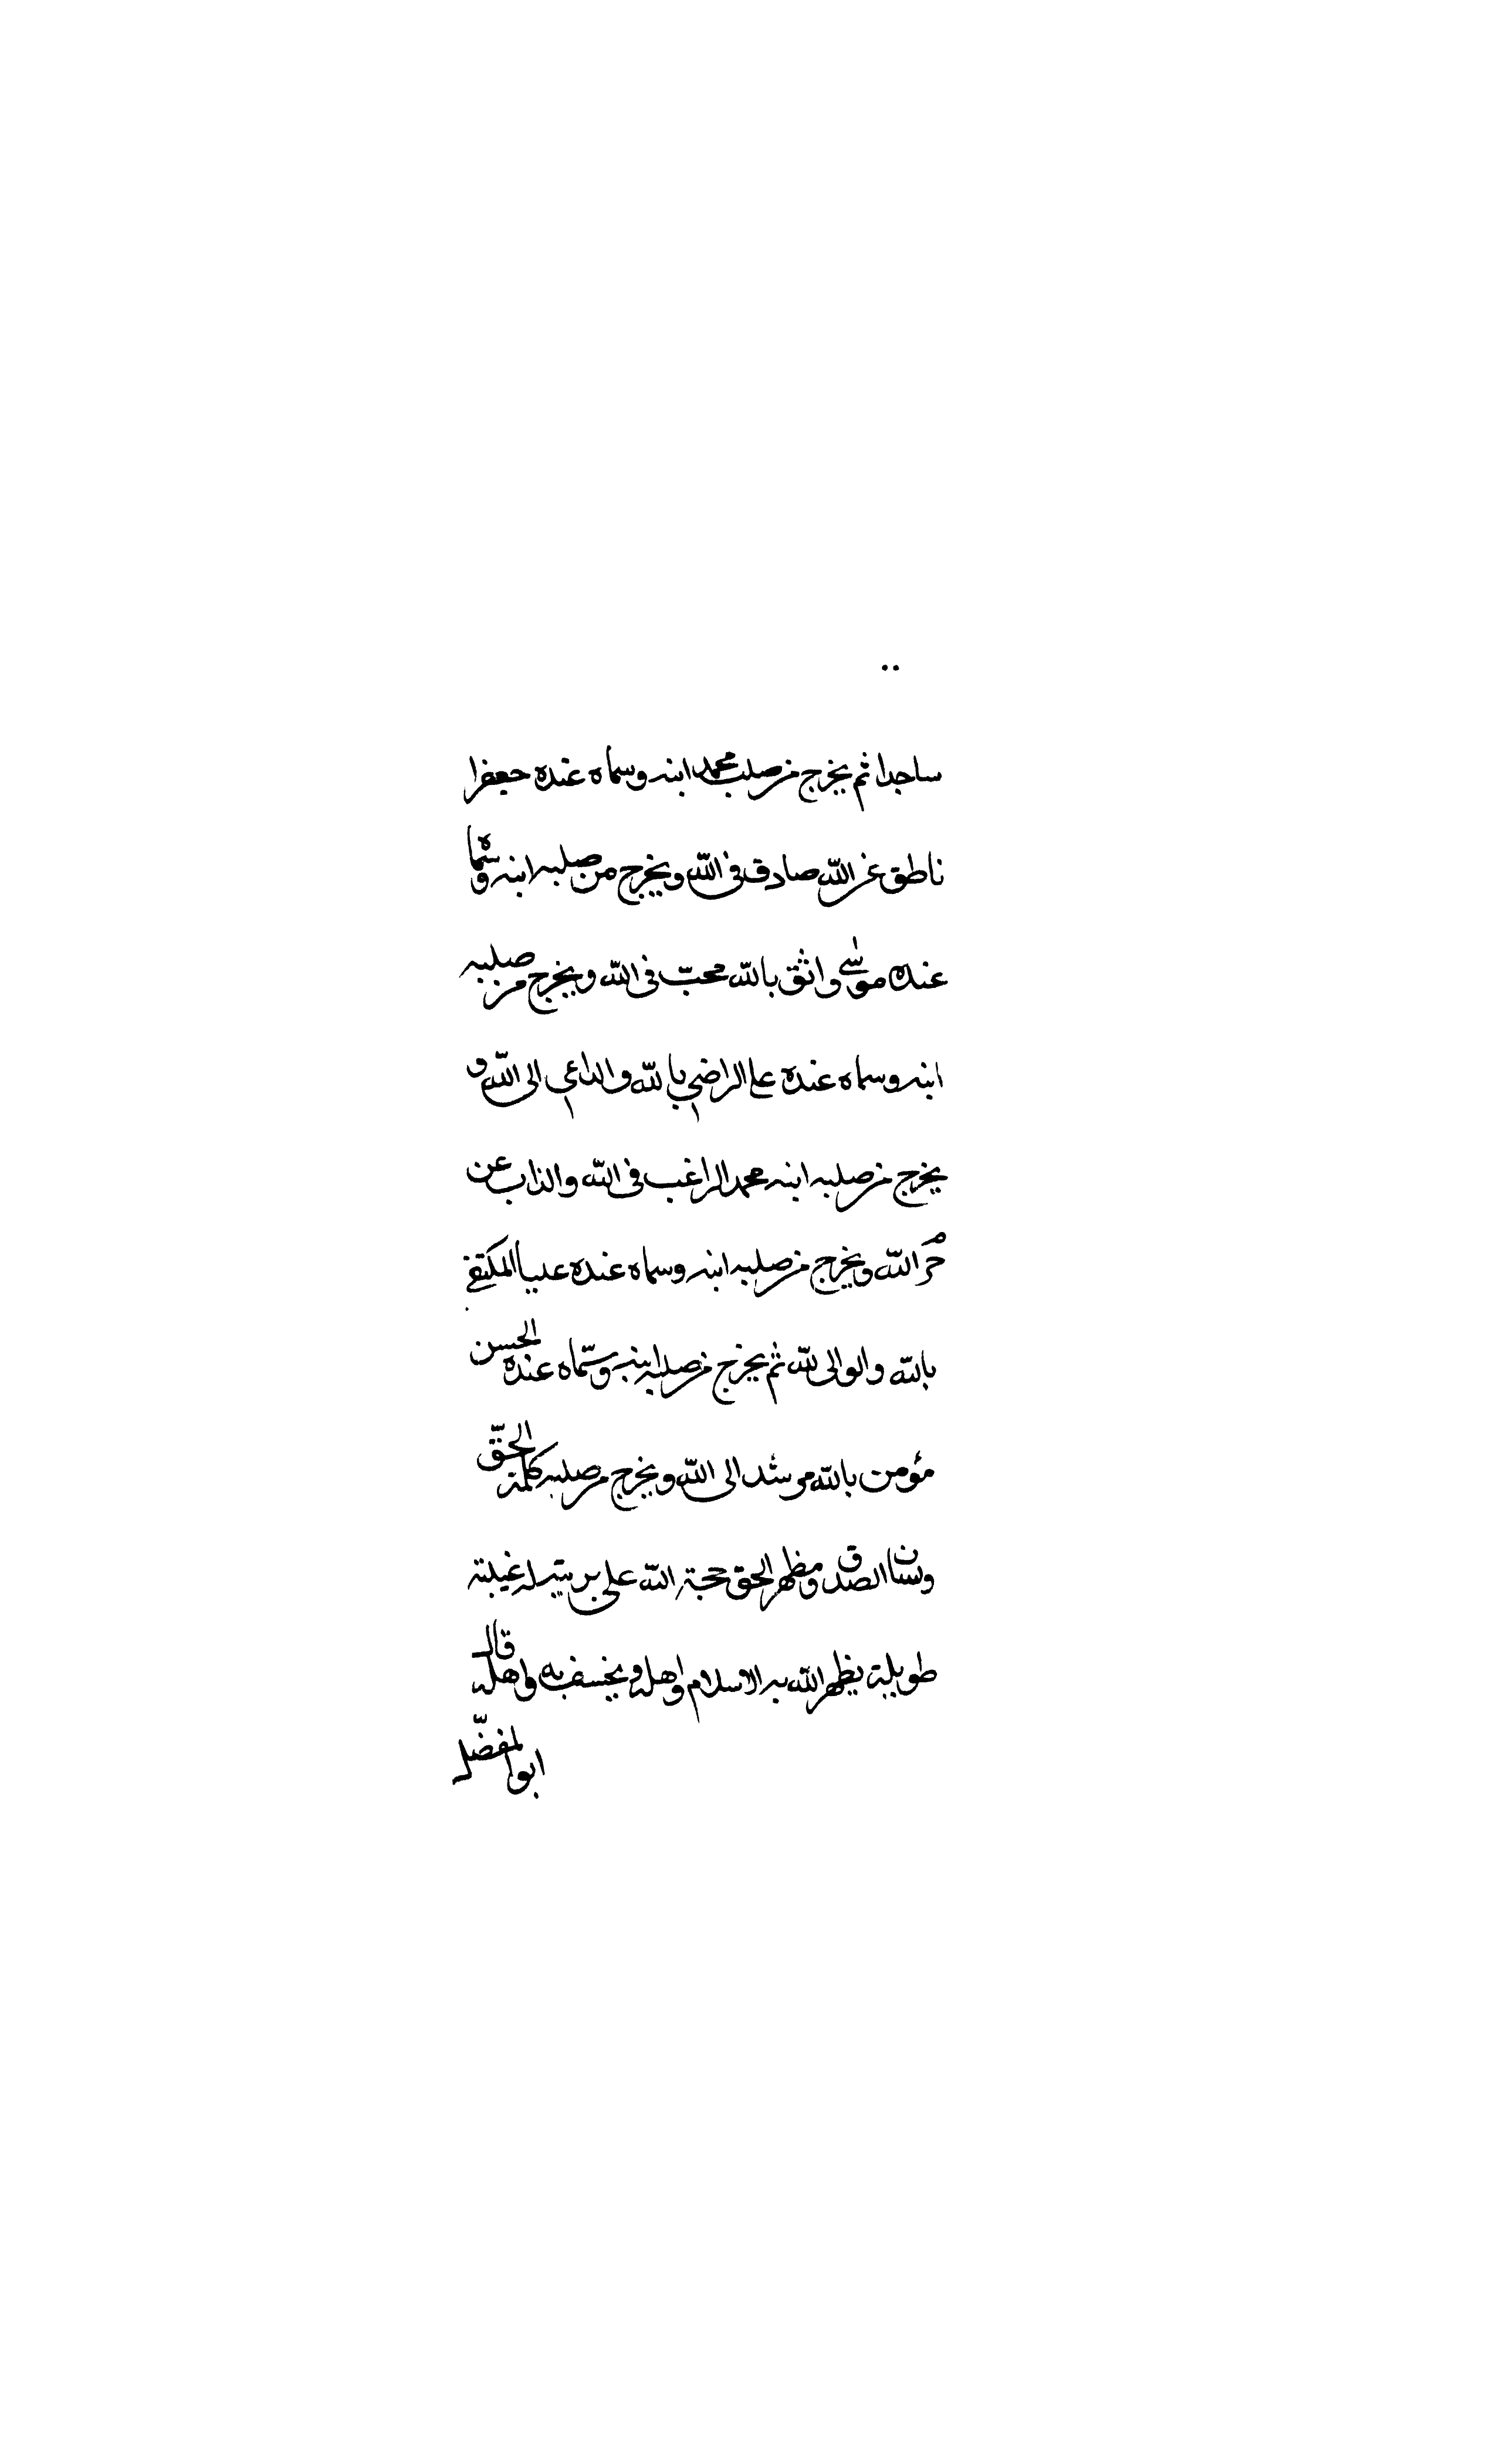 ساجدا ثم يخرج من صلب محمد ابنه وسماه عنده جعفرا
ناطق عن الله صادق في الله ويخرج من صلبه ابنه وسماه
عنده موسى واثق بالله محبّ في الله ويخرج من صلبه
ابنه وسماه عنده علي الراضي بالله والداعي الى الله و
يخرج من صلبه ابنه محمد الراغب في الله والذاب عن
حرم الله ويخرج من صلبه ابنه وسماه عنده عليا المكتفي
بالله والوالي لله ثم يخرج من صلبه ابنه وسمّاه عنده الحسن
مؤمن بالله مرشد الى الله ويخرج من صلبه كلمة الحقّ
ولسان الصدق ومظهر الحق حجة الله على بريته له غيبته
طويلة يظهر الله به الاسلام واهله ويخسف به واهله قال
ابو المفضّل